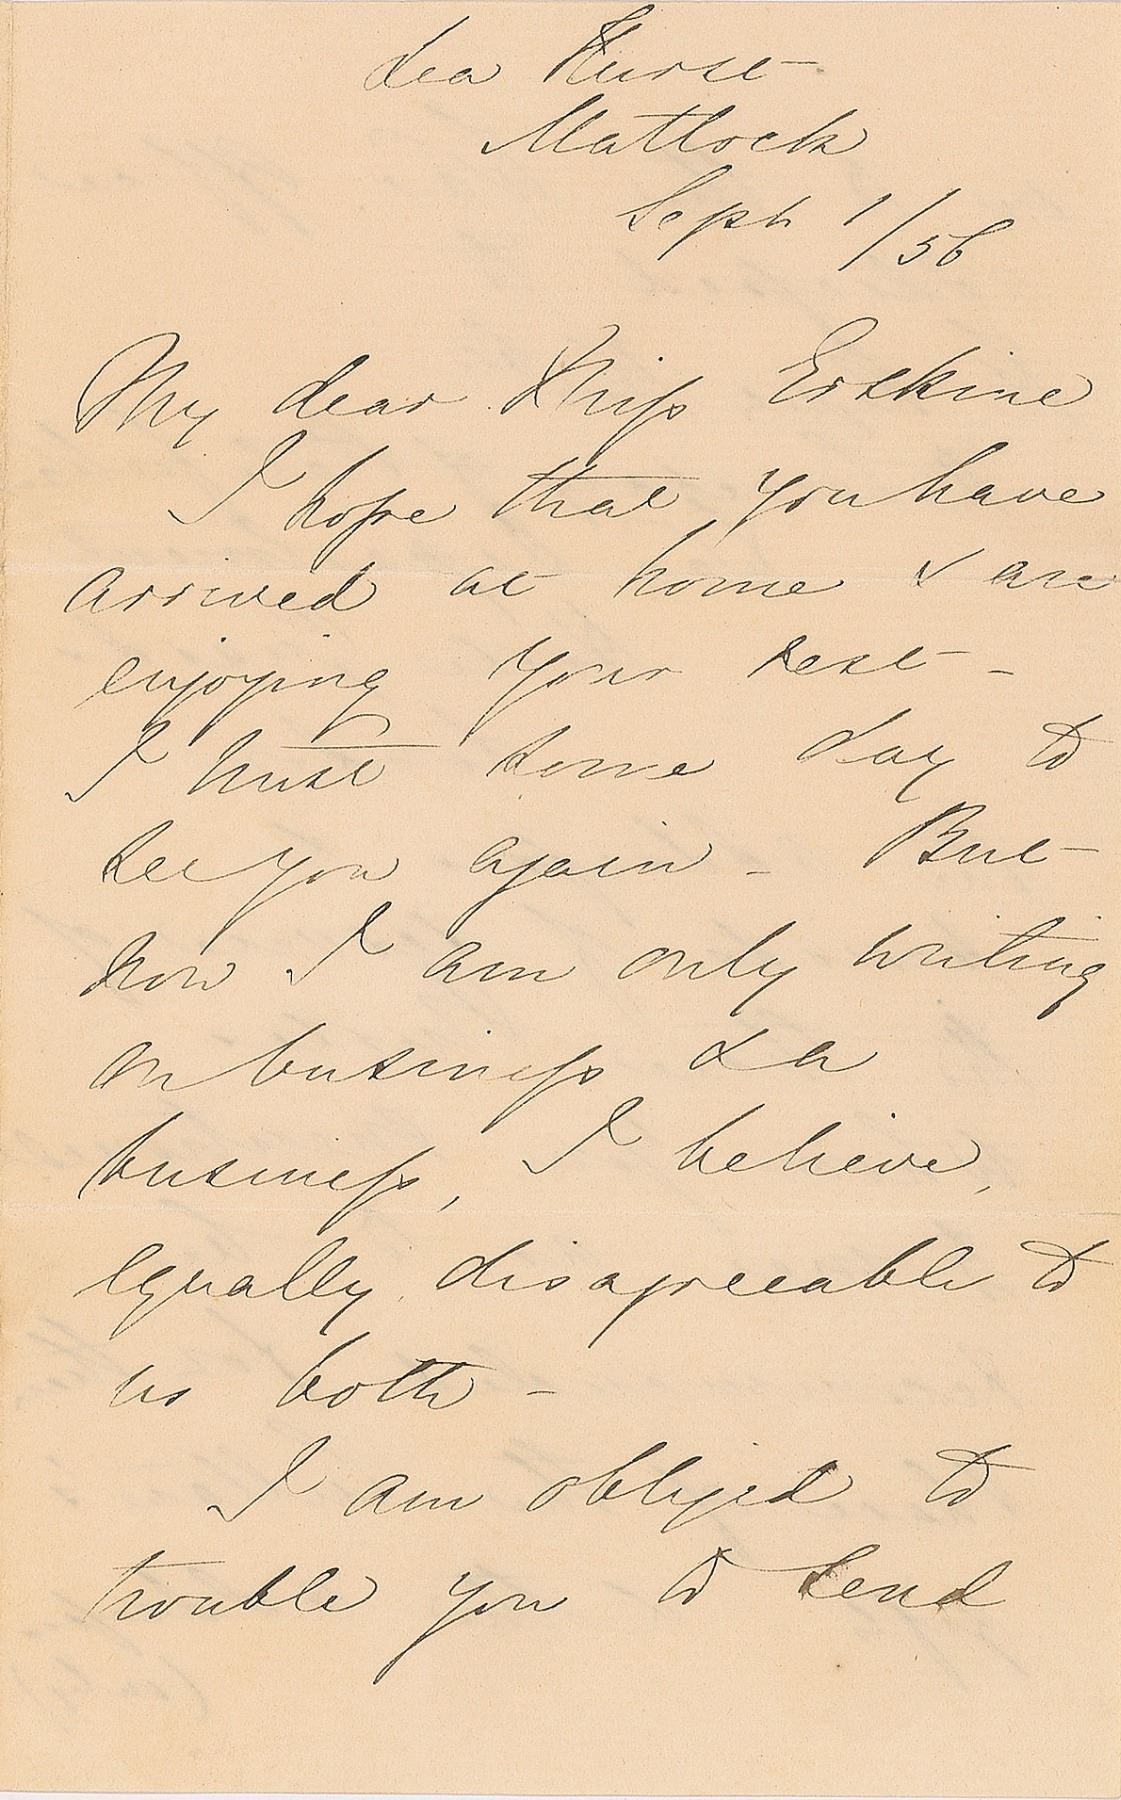 Lea Hurst -
Matlock
Sept 1/56
My dear Miss Erskine
I hope that you have
arrived at home & are
enjoying your rest -
I trust some day to
see you again - But
now I am only writing
on business & a
business, I believe,
equally disagreeable to
us both -
I am obliged to
trouble you to send